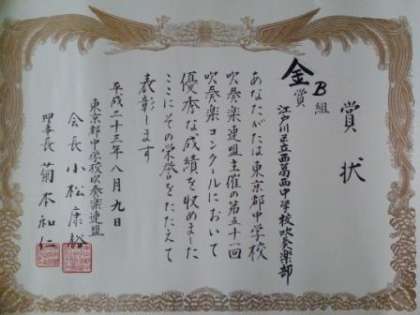 賞状
B組
金賞
江戸川区立西葛西中学校吹奏楽部
あなたがたは東京都中学校
吹奏楽連盟主催の第五十一回
吹奏楽コンクールにおいて
優秀な成績を収めました
ここにその栄誉をたたえて
表彰します
平成二十三年八月九日
東京都中学校吹奏楽連盟
会長 小松康裕
理事長 菊本和仁